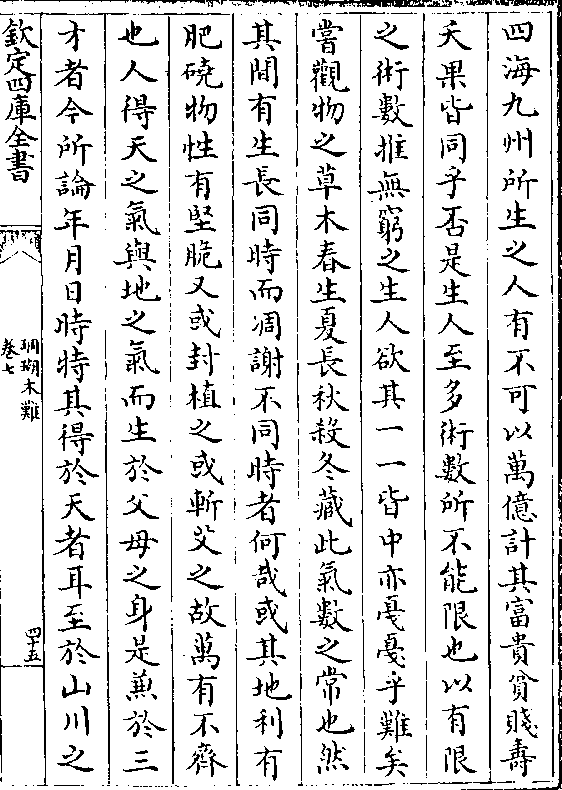 四海九州所生之人有不可以萬億計其富貴貧賤壽
夭果皆同乎否是生人至多術數所不能限也以有限
之術數推無窮之生人欲其一一皆中亦戞戞乎難矣
嘗觀物之草木春生夏長秋殺冬藏此氣數之常也然
其間有生長同時而凋謝不同時者何哉或其地利有
肥磽物性有堅脆又或封植之或斬艾之故萬有不齊
也人得天之氣與地之氣而生於父母之身是兼於三
才者今所論年月日時特其得於天者耳至於山川之
欽定四庫全書
珊瑚木難
卷七
四十五